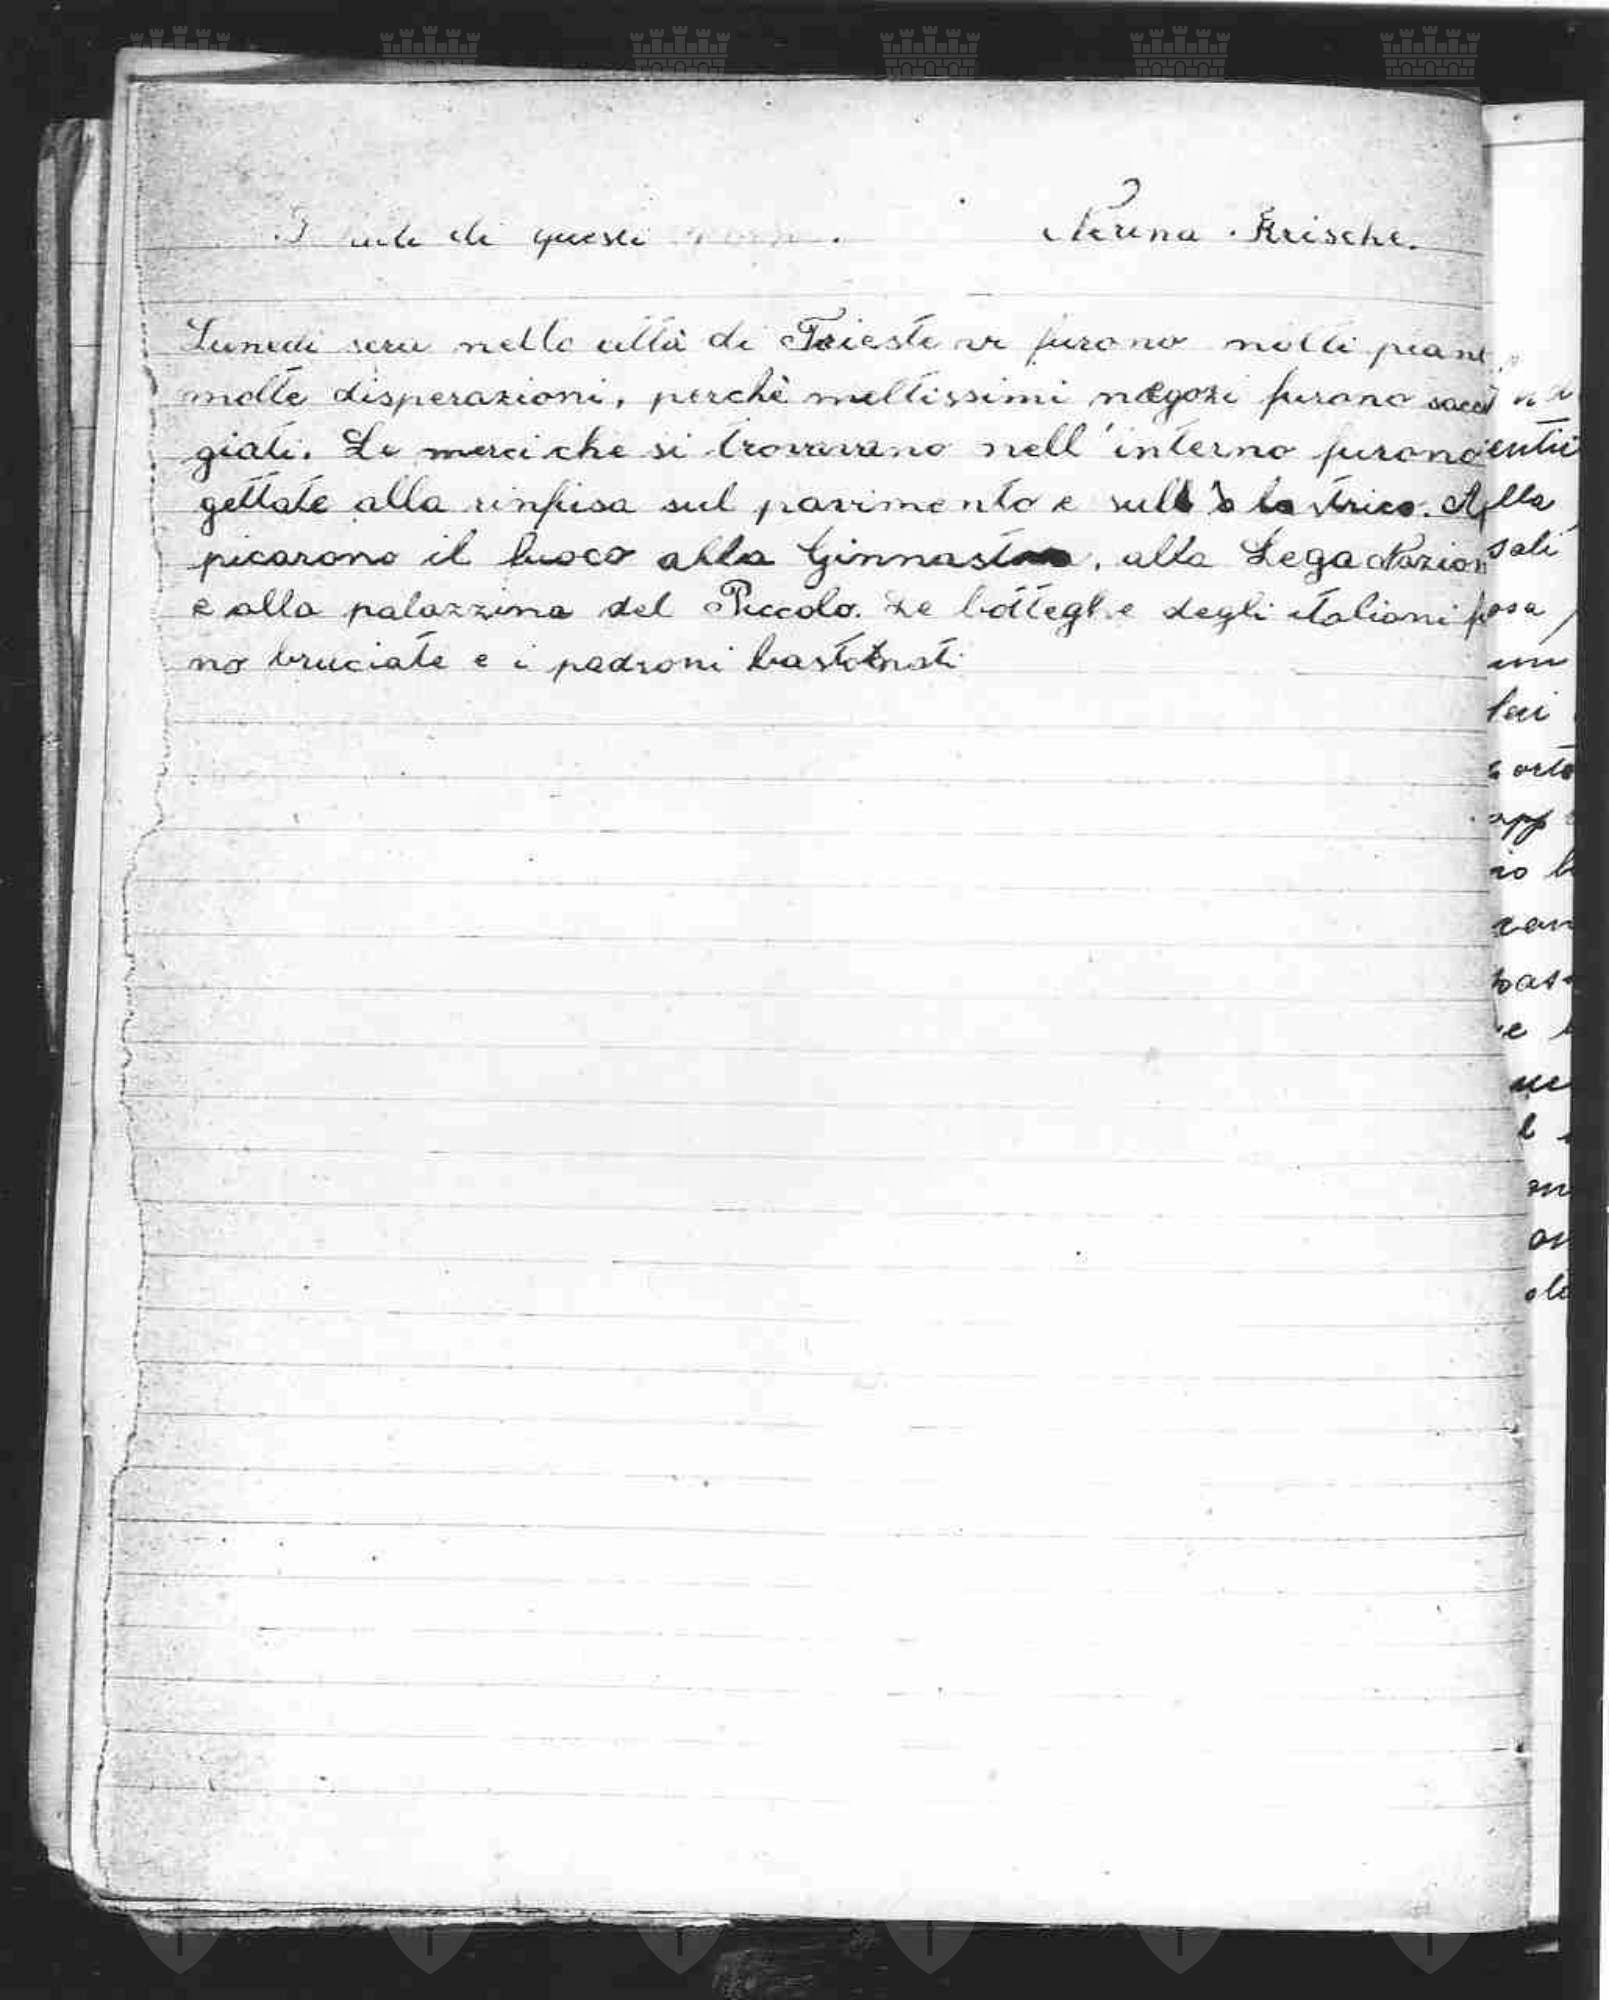 I di questi Nerina Krische.
Lunedi sera nella città di Trieste vi furono molti piant
molte disperazioni, perchè moltissimi negozi furono sacch
giati. Le merci che si trovavano nell'interno furono
gettate alla rinfusa sul pavimento e sul lastrico. Ap
picarono il fuoco alla Ginnastica, alla Lega Nazion
e alla palazzina del Piccolo. Le botteghe degli italiani f
no bruciate e i padroni bastonati
entu
lla
sali
osa
un
lei
orto
app
io
zan